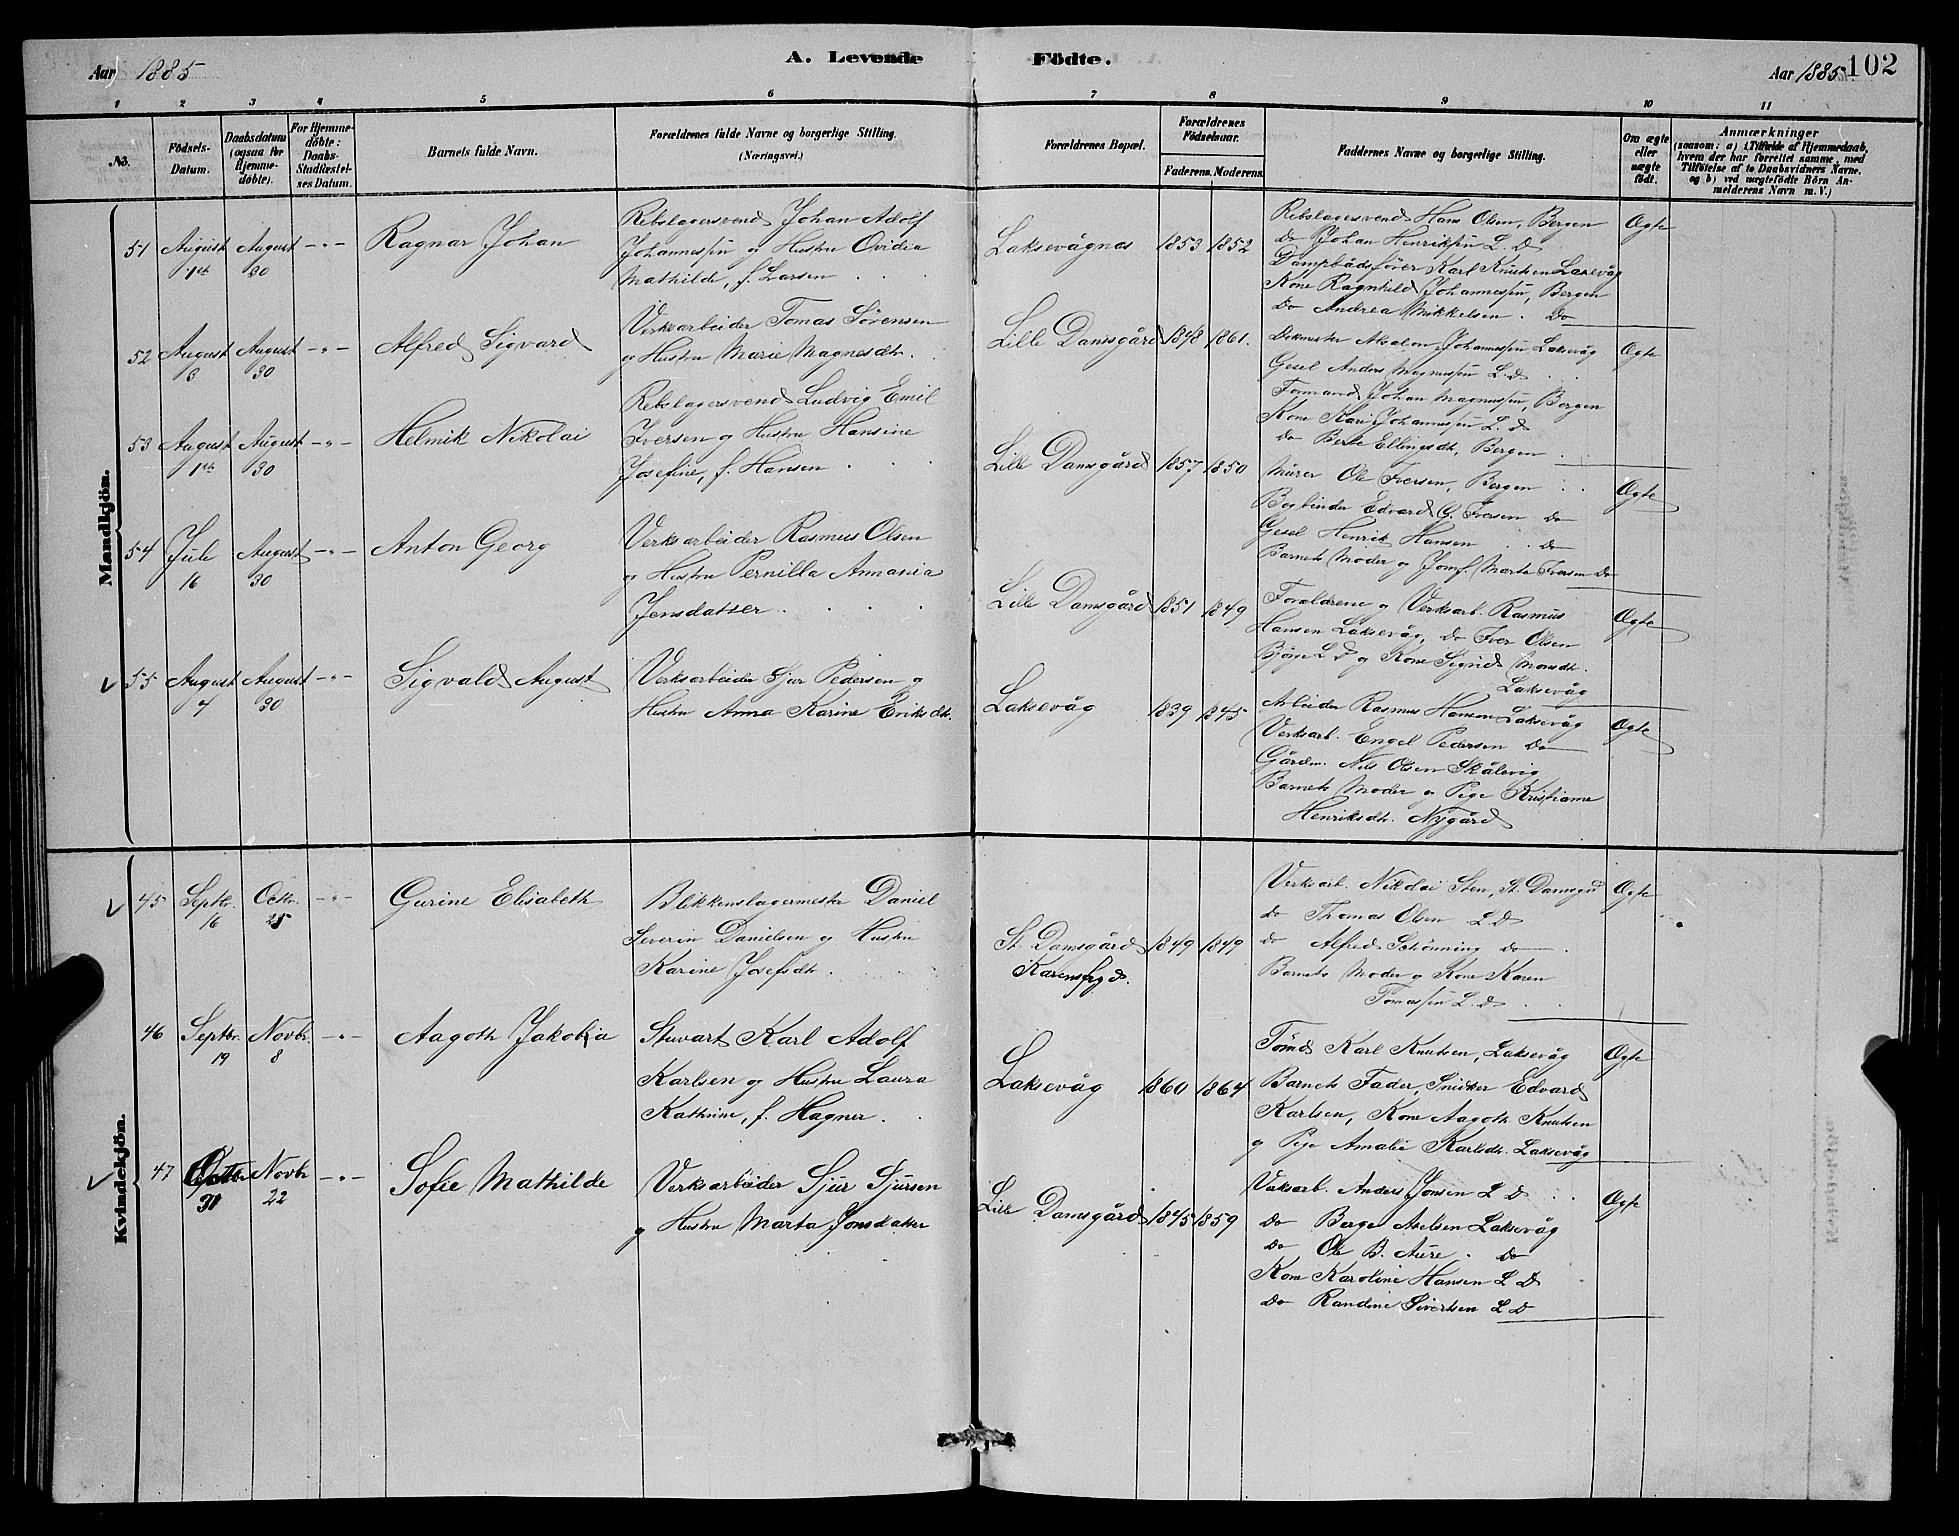 Aar 1885
A. Levende Födte.
Aar 1885 102
1 2 3 4 5 6 7 8 9 10 11
No.
Födsels-Datum.
Daabsdatum (ogsaa for Hjemmedöbte).
For Hjemmedöbte: Daabs-Stadfæstelses Datum.
Barnets fulde Navn.
Forældrenes fulde Navne og borgerlige Stilling. (Næringsvei.)
Forældrenes Bopæl.
Forældrenes Födselsaar.
Faderens. Moderens.
Faddernes Navne og borgerlige Stilling.
Om ægte eller uægte födt.
Anmærkninger
(saasom: a) i Tilfælde af Hjemmedaab,
hvem der har forrettet samme, med
Tilföielse af to Daabsvidners Navne,
og b) ved uægtefödte Börn Anmelderens Navn m. V.)
Mandkjön.
51 August 1st August 30 -"- Ragnar Johan
Rebslagersvend Johan Adolf
Johannessen og Hustru Ovidia
Mathilde, f. Larsen
Laksevågnæs 1853 1852
Rebslagersvend Hans Olsen, Bergen
Do Johan Henriksen L. D
Dampbådsfører Karl Knutsen Laksevåg
Kone Ragnhild Johannessen, Bergen
Do Andrea Mikkelsen. Do
Ægte
52 August 3 August 30 -"- Alfred Sigvard
Verksarbeider Tomas Sörensen
og Hustru Marie Magnesdtr.
Lille Damsgård 1848 1861.
Dokmester Absalon Johannessen Laksevåg
Gesel Anders Magnussen L. D
Formand Johan Magnussen, Bergen
Kone Kari Johannessen L. D
do Berte Ellingsdtr, Bergen
Ægte
53 August 1st August 30 -"- Helmik Nikolai
Rebslagersvend Ludvig Emil
Iversen og Hustru Hansine
Josefine, f. Hansen
Lille Damsgård 1857 1850
Murer Ole Iversen, Bergen
Bogbinder Edvard G. Iversen do
Gesel Henrik Hansen do
Barnets Moder og Jomf. Marte Iversen Do
Ægte
54 Juli 16 August 30 -"- Anton Georg
Verksarbeider Rasmus Olsen
og Hustru Pernilla Annania
Jensdatter
Lille Damsgård 1851 1849
Forældrene og Verksarb. Rasmus
Hansen Laksevåg, do Iver Olsen
Björge L D og Kone Sigrid Monsdtr.
Laksevåg
Ægte
55 August 4 August 30 -"- Sigvald August
Verksarbeider Sjur Pedersen og
Hustru Anna Karine Eriksdtr.
Laksevåg 1839 1845
Arbeider Rasmus Hansen Laksevåg
Verksarb. Engel Pedersen do
Gårdm. Nils Olsen Skålevig
Barnets Moder og Pige Kristianne
Henriksdtr. Nygård
Ægte
Kvindekjön.
45 Septbr. 16 Octbr. 25 -"- Gurine Elisabeth
Blikkenslagermester Daniel
Severin Danielsen og Hustru
Karine Josefsdtr.
St. Damsgård 1849 1849
Verksarb. Nikolai Sten, St. Damsgrd
do Thomas Olsen L D
do Alfred Schönning do
Barnets Moder og Kone Karen
Tomassen L. D
Ægte
46 Septbr. 19 Novbr. 8 -"- Aagoth Jakobia
Stuvart Karl Adolf
Karlsen og Hustru Laura
Kathrine, f. Hagner.
Laksevåg 1860 1864
Tömd Karl Knutsen, Laksevåg
Barnets Fader, Snidker Edvard
Karlsen, Kone Aagoth Knutsen
og Pige Amalie Karlsdtr. Laksevåg
Ægte
47 Octbr. Novbr 22 -"- Sofie Mathilde
Verksarbeider Sjur Sjursen
og Hustru Marta Jonsdatter
Lille Damsgård 1845 1859
Verksarb. Anders Jonsen L D
do Berge Axelsen Laksevåg
do Ole B. Aure. do
Kone Karoline Hansen L D
do Randine Sivertsen L D
Ægte